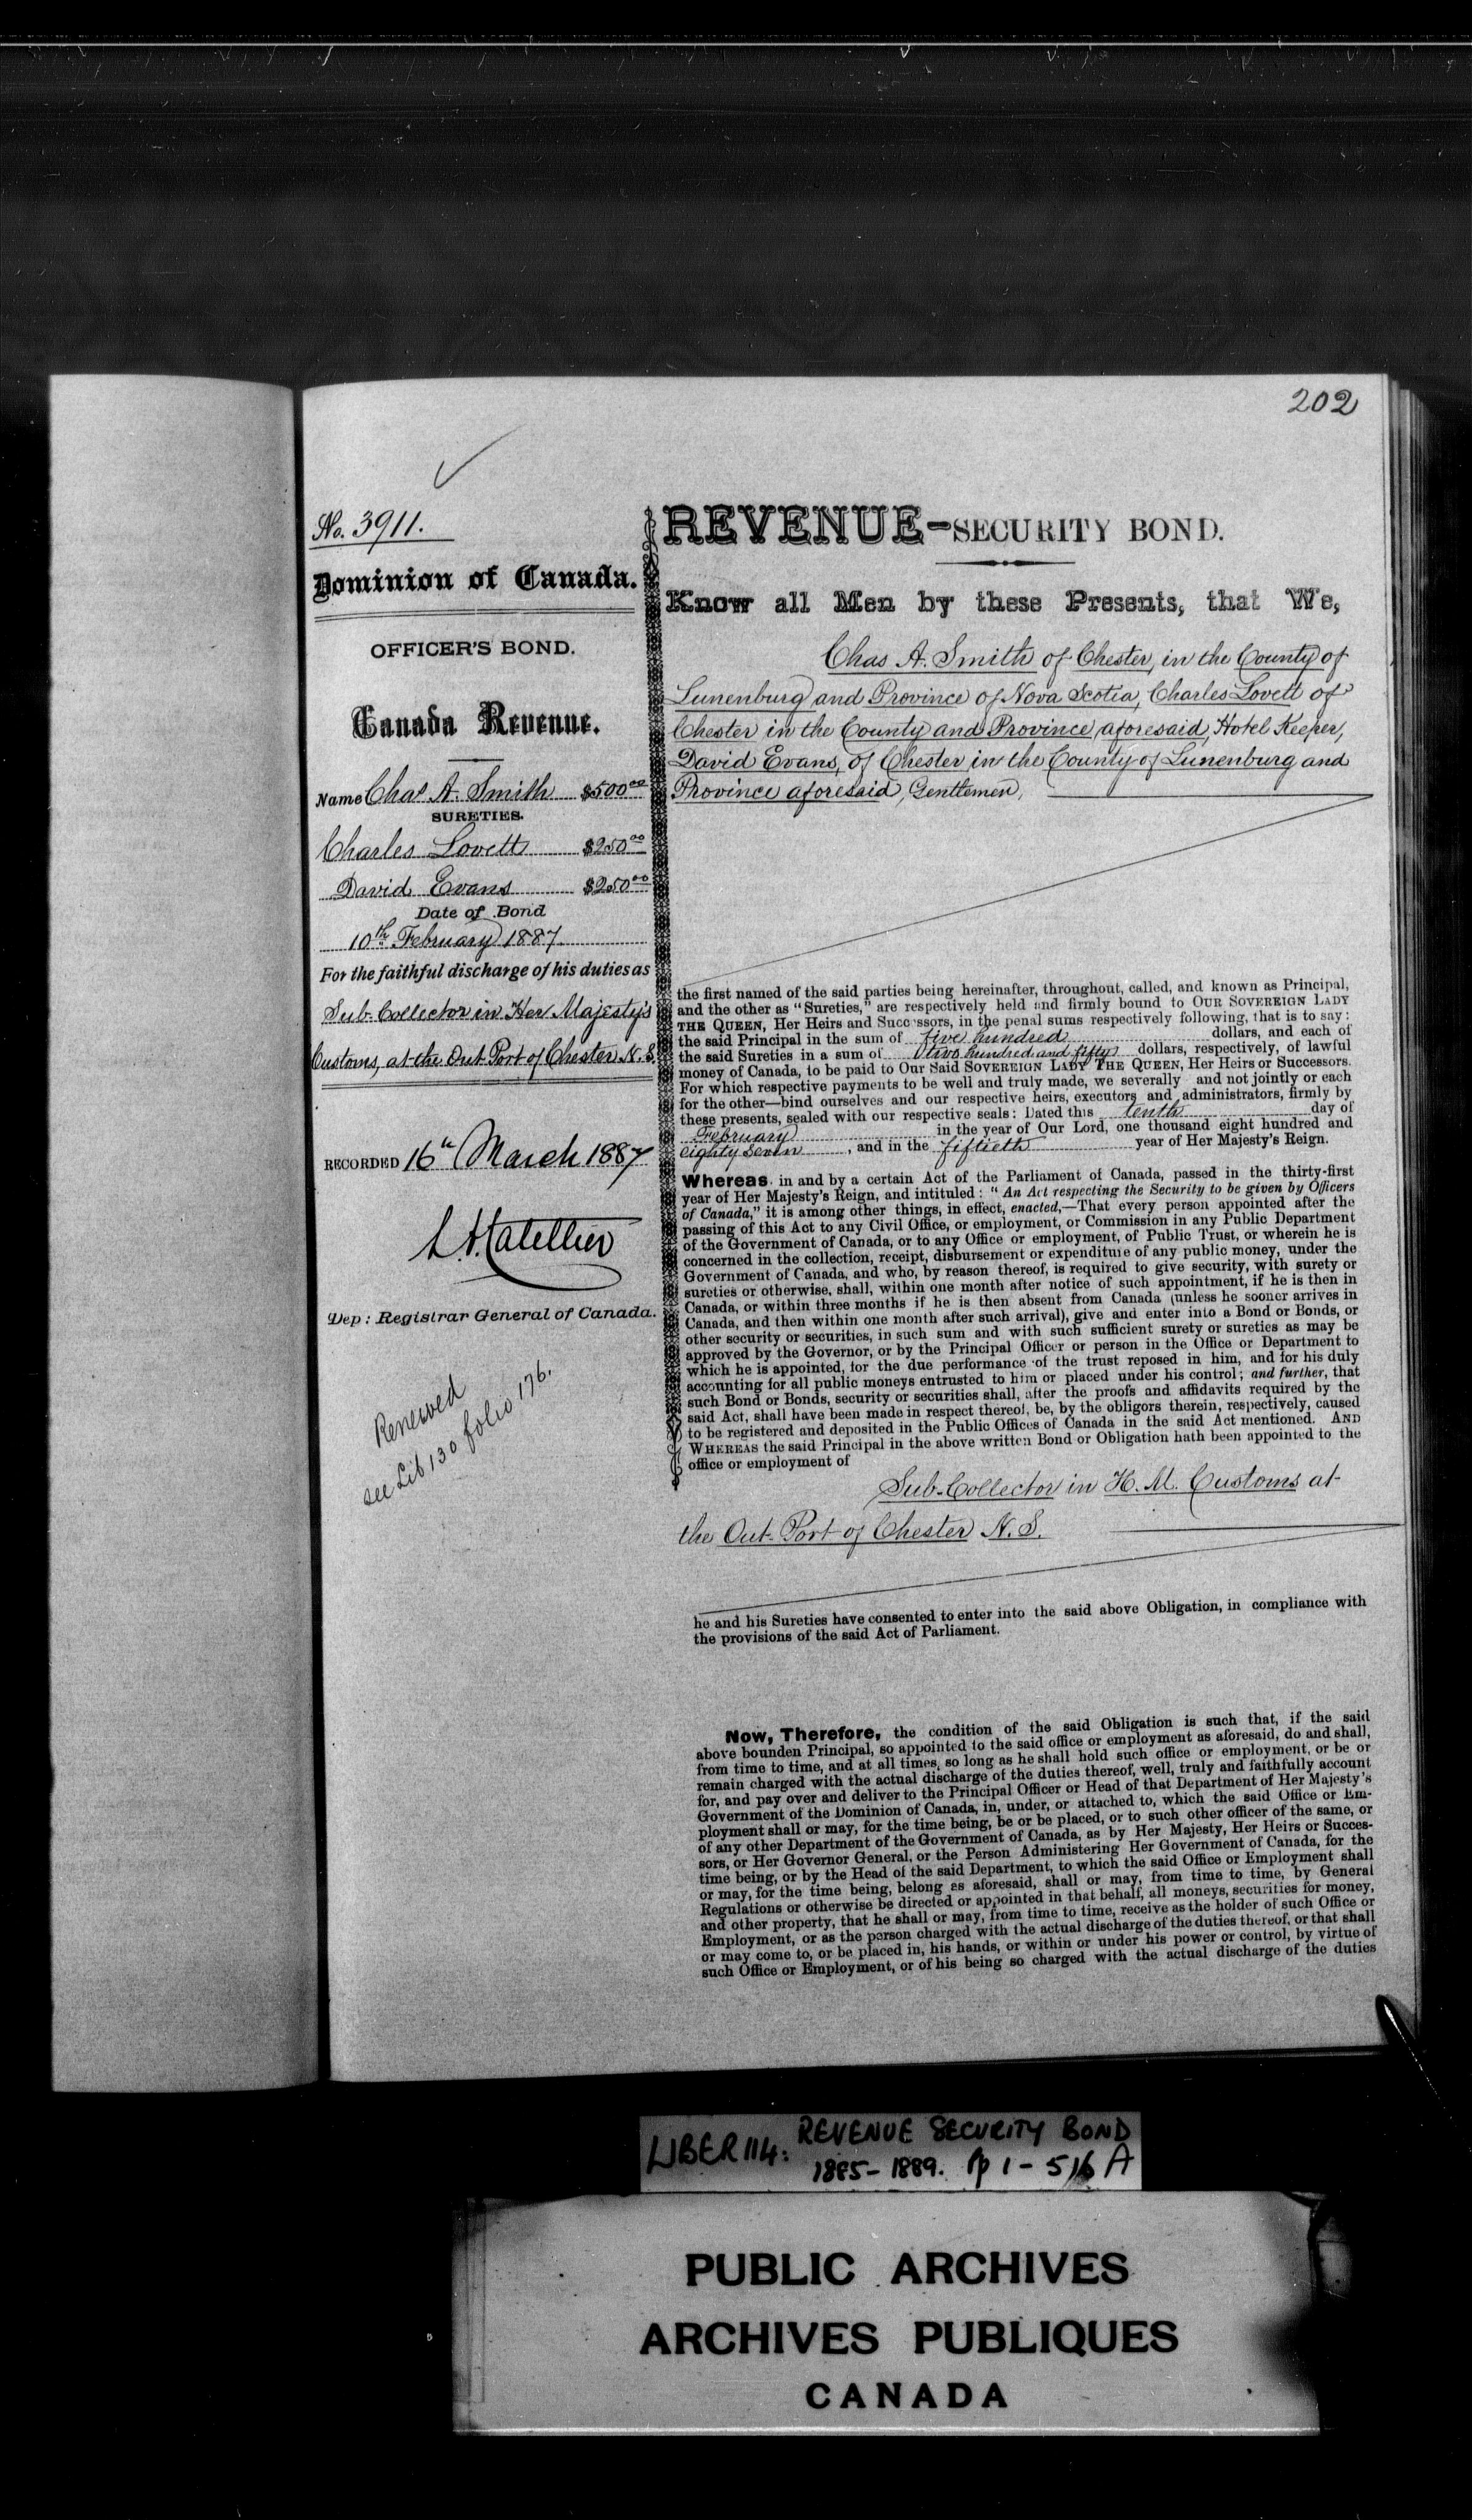 202
No. 3911.
Dominion of Canada.
OFFICER'S BOND.
Canada Revenue.
Name Chas A. Smith $500.00
SURETIES.
Charles Lovett $250.00
David Evans $250.00
Date of Bond
10th February 1887
For the faithful discharge of his duties as
Sub-Collector in Her Majesty's
Customs, at the Out Port of Chester N.S.
RECORDED 16th March 1887
Dep: Registrar General of Canada.
Renewed
see Lib 130 folio 176.
REVENUE-SECURITY BOND.
Know all Men by these Presents, that We,
Chas A. Smith of Chester, in the County of
Lunenburg and Province of Nova Scotia, Charles Lovett of
Chester in the County and Province aforesaid, Hotel Keeper,
David Evans, of Chester in the County of Lunenburg and
Province aforesaid, Gentlemen,
the first named of the said parties being hereinafter, throughout, called, and known as Principal,
and the other as "Sureties," are respectively held and firmly bound to OUR SOVEREIGN LADY
THE QUEEN, Her Heirs and Successors, in the penal sums respectively following, that is to say:
the said Principal in the sum of five hundred dollars, and each of
the said Sureties in a sum of two hundred and fifty dollars, respectively, of lawful
money of Canada, to be paid to Our Said SOVEREIGN LADY THE QUEEN, Her Heirs or Successors.
For which respective payments to be well and truly made, we severally and not jointly or each
for the other—bind ourselves and our respective heirs, executors and administrators, firmly by
these presents, sealed with our respective seals: Dated this tenth day of
February in the year of Our Lord, one thousand eight hundred and
eighty seven, and in the fiftieth year of Her Majesty's Reign.
Whereas in and by a certain Act of the Parliament of Canada, passed in the thirty-first
year of Her Majesty's Reign, and intituled: "An Act respecting the Security to be given by Officers
of Canada," it is among other things, in effect, enacted,—That every person appointed after the
passing of this Act to any Civil Office, or employment, or Commission in any Public Department
of the Government of Canada, or to any Office or employment, of Public Trust, or wherein he is
concerned in the collection, receipt, disbursement or expenditure of any public money, under the
Government of Canada, and who, by reason thereof, is required to give security, with surety or
sureties or otherwise, shall, within one month after notice of such appointment, if he is then in
Canada, or within three months if he is then absent from Canada (unless he sooner arrives in
Canada, and then within one month after such arrival), give and enter into a Bond or Bonds, or
other security or securities, in such sum and with such sufficient surety or sureties as may be
approved by the Governor, or by the Principal Officer or person in the Office or Department to
which he is appointed, for the due performance of the trust reposed in him, and for his duly
accounting for all public moneys entrusted to him or placed under his control; and further, that
such Bond or Bonds, security or securities shall, after the proofs and affidavits required by the
said Act, shall have been made in respect thereof, be, by the obligors therein, respectively, caused
to be registered and deposited in the Public Offices of Canada in the said Act mentioned. AND
WHEREAS the said Principal in the above written Bond or Obligation hath been appointed to the
office or employment of
Sub-Collector in H. M. Customs at
the Out-Port of Chester N.S.
he and his Sureties have consented to enter into the said above Obligation, in compliance with
the provisions of the said Act of Parliament.
Now, Therefore, the condition of the said Obligation is such that, if the said
above bounden Principal, so appointed to the said office or employment as aforesaid, do and shall,
from time to time, and at all times, so long as he shall hold such office or employment, or be or
remain charged with the actual discharge of the duties thereof, well, truly and faithfully account
for, and pay over and deliver to the Principal Officer or Head of that Department of Her Majesty's
Government of the Dominion of Canada, in, under, or attached to, which the said Office or Em-
ployment shall or may, for the time being, be or be placed, or to such other officer of the same, or
of any other Department of the Government of Canada, as by Her Majesty, Her Heirs or Succes-
sors, or Her Governor General, or the Person Administering Her Government of Canada, for the
time being, or by the Head of the said Department, to which the said Office or Employment shall
or may, for the time being, belong as aforesaid, shall or may, from time to time, by General
Regulations or otherwise be directed or appointed in that behalf, all moneys, securities for money,
and other property, that he shall or may, from time to time, receive as the holder of such Office or
Employment, or as the person charged with the actual discharge of the duties thereof, or that shall
or may come to, or be placed in, his hands, or within or under his power or control, by virtue of
such Office or Employment, or of his being so charged with the actual discharge of the duties
LIBER 114: REVENUE SECURITY BOND
1885-1889. pp 1-516 A
PUBLIC ARCHIVES
ARCHIVES PUBLIQUES
CANADA